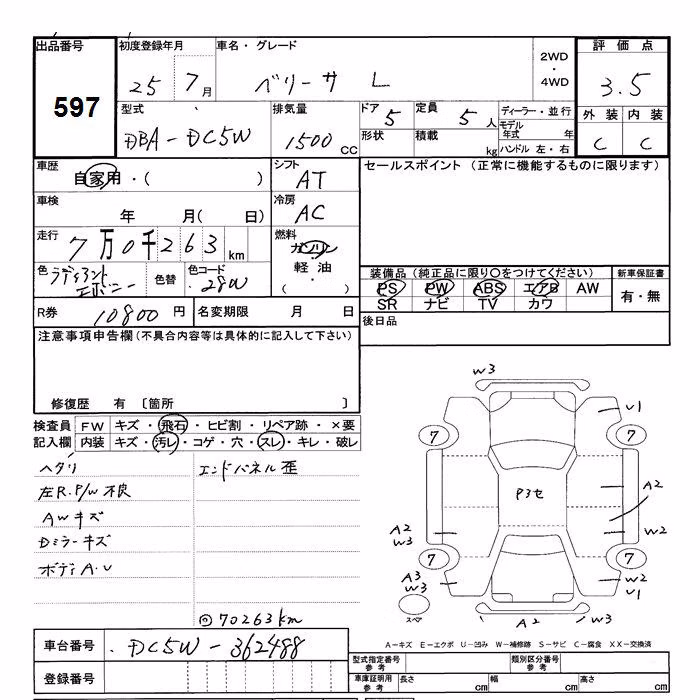 出品番号 初度登録年月 車名・グレード 2WD・4WD 評価点
597 25 7月 ベリーサ L 3.5
型式 排気量 ドア 5 定員 5人 ディーラー・並行 外装 内装
DBA-DC5W 1500CC 形状 積載 kg モデル年式 年 C C
ハンドル 左・右
車歴 自家用・( ) シフト AT セールスポイント (正常に機能するものに限ります)
車検 年 月( 日) 冷房 AC
走行 7万0千263km 燃料 ガソリン
色 ラディアントエボニー 色替 色コード 28W 軽油 ( )
装備品 (純正品に限り〇をつけてください) 新車保証書
PS PW ABS エアB AW 有・無
SR ナビ TV カワ
R券 10800円 名変期限 月 日 後日品
注意事項申告欄(不具合内容等は具体的に記入して下さい)
修復歴 有 〔箇所 〕
検査員 FW キズ・飛石・ヒビ割・リペア跡・×要
記入欄 内装 キズ・汚レ・コゲ・穴・スレ・キレ・破レ
ヘタリ エンドパネル歪
左R.P/W不良
AWキズ
Dミラーキズ
ボディA.U
◎70263km
W3
U1
7 7
P3セ
A2
A2
W3
W2
7 7
A3
W3
W2
U1
スペア A2 W3
A-キズ E-エクボ U-凹み W-補修跡 S-サビ C-腐食 XX-交換済
車台番号 DC5W-362488
登録番号
型式指定番号 参考 類別区分番号 参考
車庫証明用 参考 長さ cm 幅 cm 高さ cm